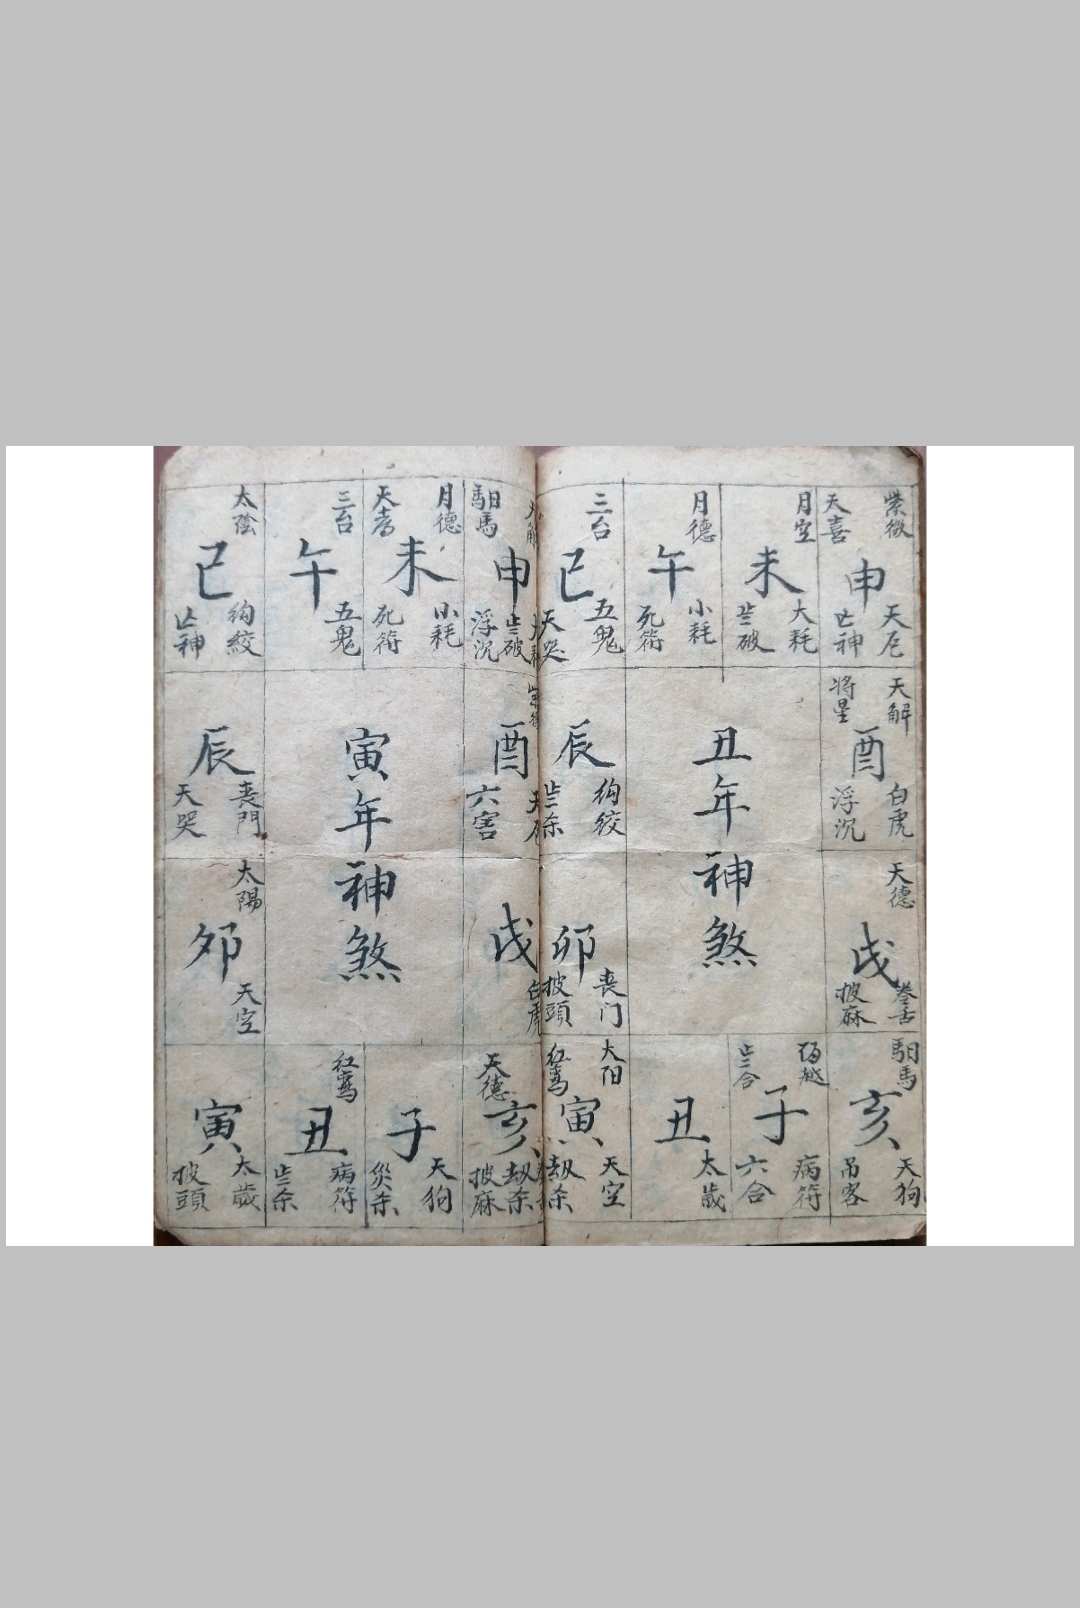 紫微
天喜
申
天厄
亡神
月空
未
大耗
歲破
月德
午
小耗
死符
三台
巳
五鬼
天哭
天解
将星
酉
白虎
浮沉
丑年神煞
辰
絢絞
歲杀
天德
戌
卷舌
披麻
卯
喪门
披頭
馹馬
亥
天狗
吊客
歲合
子
病符
六合
丑
太歲
太阳
紅鸾
寅
天空
劫杀
馹馬
申
歲破
浮沉
月德
天喜
未
小耗
死符
三台
午
五鬼
太陰
巳
絢絞
亡神
酉
六害
寅年神煞
辰
喪門
天哭
戌
白虎
太陽
卯
天空
天德
亥
劫杀
披麻
子
天狗
災杀
紅鸾
丑
病符
歲杀
寅
太歲
披頭